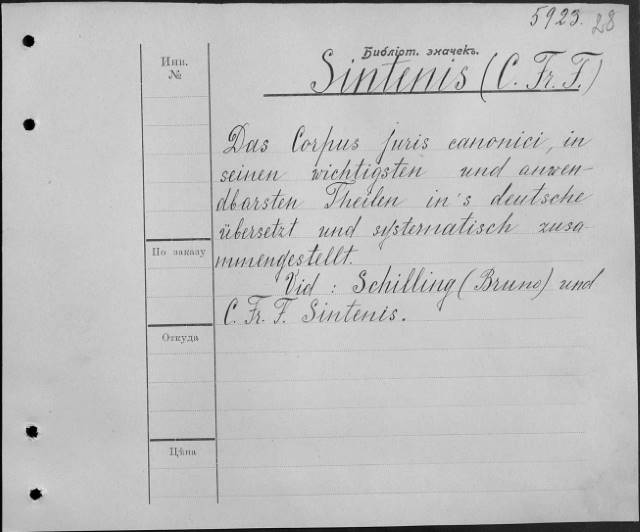 5923. 28
Библіот. значекъ.
Sintenis (C. Fr. F.)
Инв.
№
Das Corpus juris canonici, in
seinen wichtigsten und anwen-
dbarsten Theilen in's deutsche
übersetzt und systematisch zusa-
mmengestellt.
По заказу
Vid : Schilling (Bruno) und
C. Fr. F. Sintenis.
Откуда
Цѣна